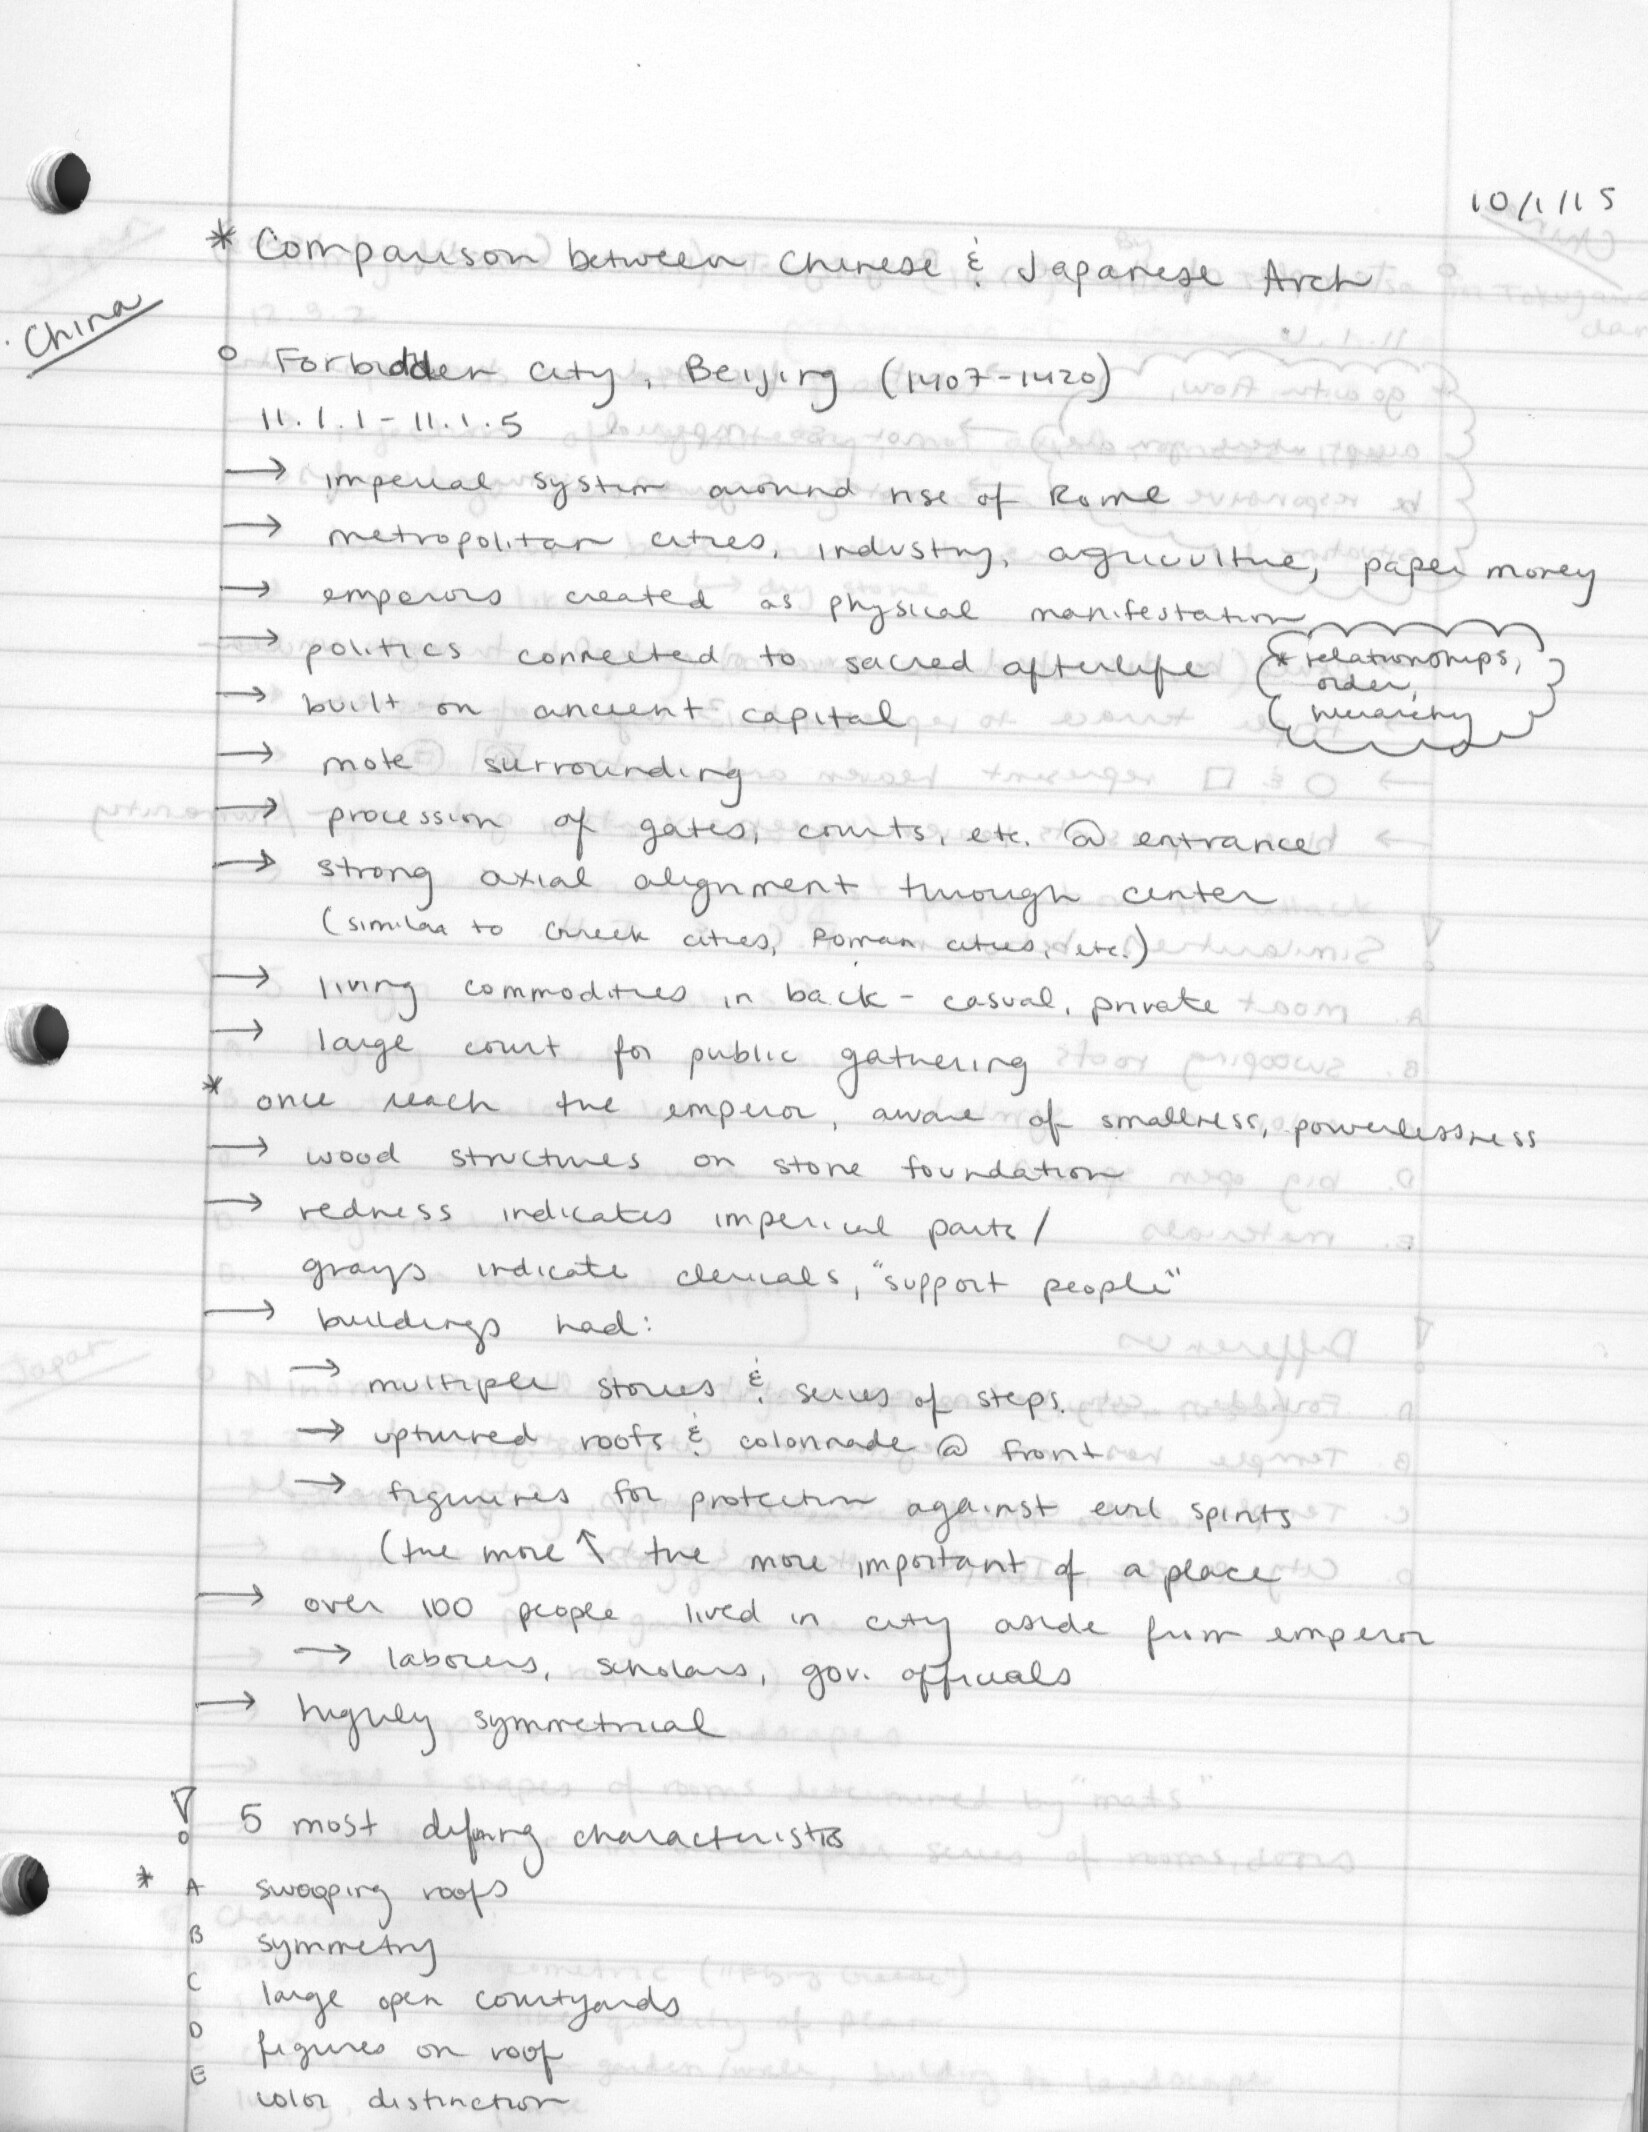 10/1/15
* Comparison between Chinese & Japanese Arch
China
○ Forbidden City, Beijing (1407-1420)
11.1.1 - 11.1.5
→ imperial system around rise of Rome
→ metropolitan cities, industry, agriculture, paper money
→ emperors created as physical manifestation
→ politics connected to sacred afterlife
* relationships,
order,
hierarchy
→ built on ancient capital
→ mote surrounding
→ procession of gates, courts, etc. @ entrance
→ strong axial alignment through center
(similar to Greek cities, Roman cities, etc.)
→ living commodities in back - casual, private
→ large court for public gathering
* once reach the emperor, aware of smallness, powerlessness
→ wood structures on stone foundation
→ redness indicates imperical parts/
grays indicate clericals, "support people"
→ buildings had:
→ multiple stories & series of steps.
→ upturned roofs & colonnade @ front
→ figures for protection against evil spirits
(the more ↑ the more important of a place
→ over 100 people lived in city aside from emperor
→ laborers, scholars, gov. officials
→ highly symmetrical
! 5 most defining characteristics
* A swooping roofs
B symmetry
C large open courtyards
D figures on roof
E color distinction